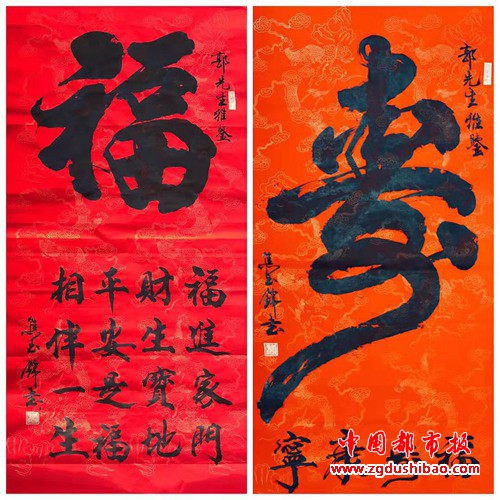 福
郭先生雅鑒
福進家門
財生寶地
平安是福
相伴一生
壽
郭先生雅鑒
寧
中国都市报
www.zgdushibao.com